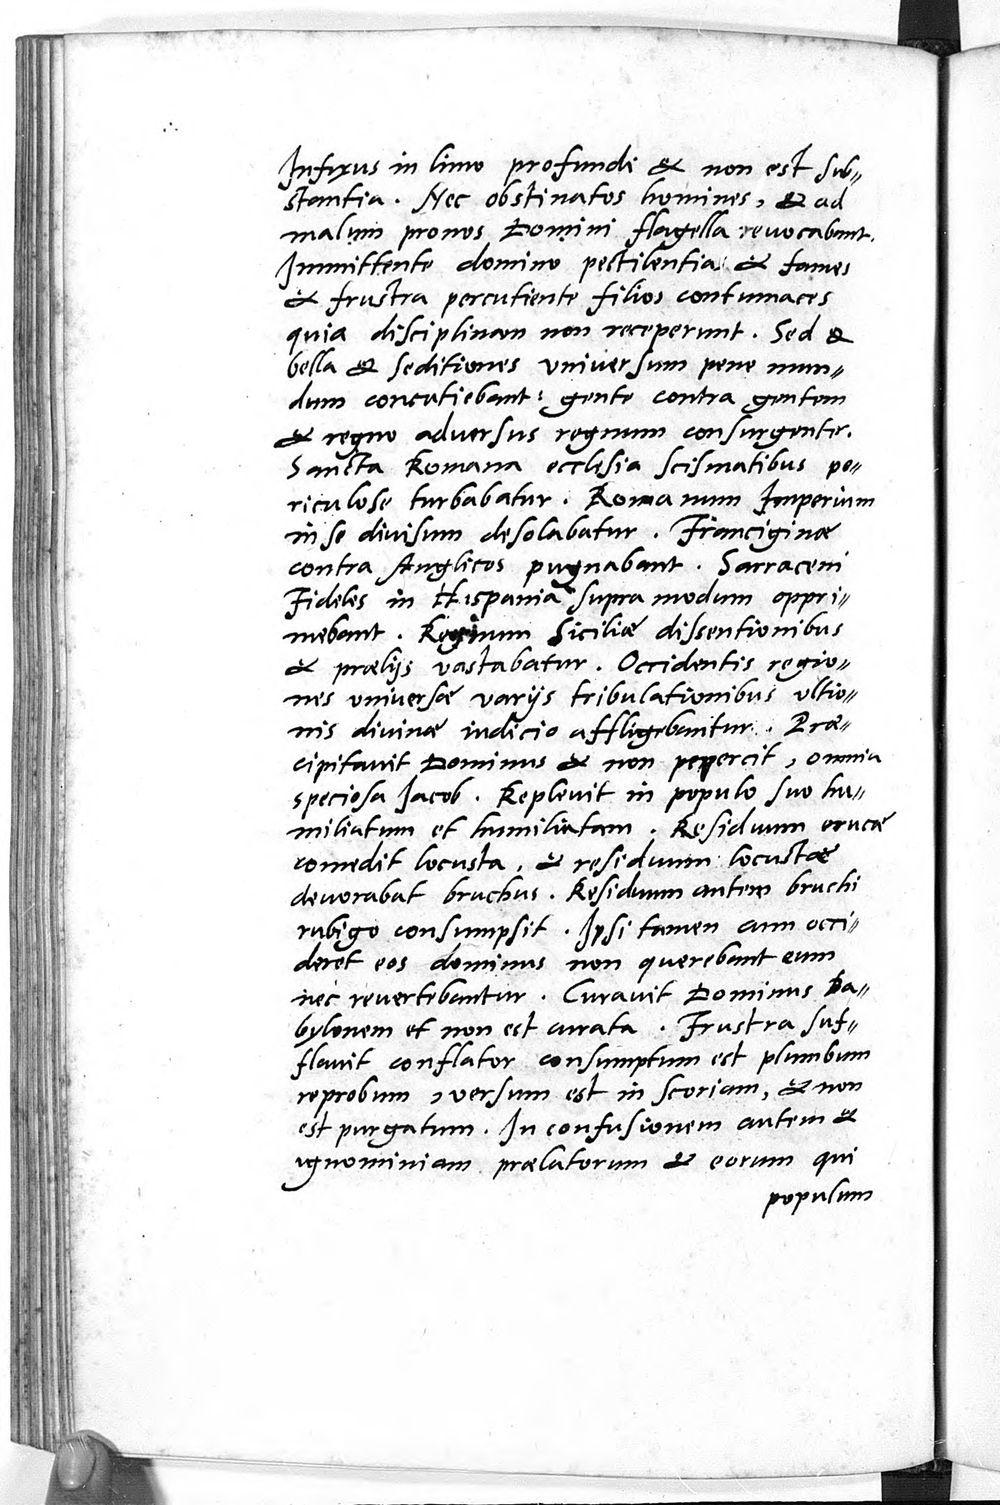 Infixus in limo profundi & non est sub„
stantia. Nec obstinatos homines, & ad
malum pronos Domini flagella revocabant.
Immittente domino pestilentia & fames
& frustra percutiente filios contumaces
quia disciplinam non receperunt. Sed &
bella & seditiones universum pene mun„
dum concutiebant: gente contra gentem
& regno adversus regnum consurgente.
Sancta Romana ecclesia scismatibus pe„
riculose turbabatur. Romanum Imperium
in se divisum desolabatur. Franciginæ
contra Anglicos pugnabant. Sarraceni
Fideles in Hispania supra modum oppri„
mebant. Regnum Siciliæ dissentionibus
& prælijs vastabatur. Occidentis regio„
nes universæ varijs tribulationibus ultio„
nis divinæ iudicio affligebantur. Præ„
cipitavit Dominus & non pepercit, omnia
speciosa Jacob. Replevit in populo suo hu„
miliatum et humiliatam. Residuum erucæ
comedit locusta, & residuum locustæ
devorabat bruchus. Residuum autem bruchi
rubigo consumpsit. Ipsi tamen cum occi„
deret eos dominus non querebant eum
nec revertebantur. Curavit Dominus Ba„
bylonem et non est curata. Frustra suf„
flavit conflator consumptum est plumbum
reprobum, versum est in scoriam, & non
est purgatum. In confusionem autem &
ignominiam prælatorum & eorum qui
populum